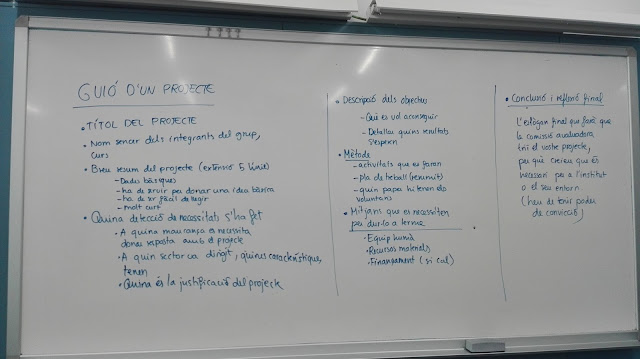 GUIÓ D'UN PROJECTE
• TÍTOL DEL PROJECTE
• Nom sencer dels integrants del grup,
curs
• Breu resum del projecte (extensió 5 línies)
- Dades bàsiques
- ha de servir per donar una idea bàsica
- ha de ser fàcil de llegir
- molt curt
• Quina detecció de necessitats s'ha fet
• A quina mancança es necessita
donar resposta amb el projecte
• A quin sector va dirigit, quines característiques
tenen
• Quina és la justificació del projecte
• Descripció dels objectius
- Què es vol aconseguir
- Detallar quins resultats
s'esperen
• Mètode
- activitats que es faran
- pla de treball (resumit)
- quin paper hi tenen els
voluntaris
• Mitjans que es necessiten
per dur-lo a terme
• Equip humà
• Recursos materials
• Finançament (si cal)
• Conclusió i reflexió final
L'eslògan final que farà que
la comissió avaluadora
triï el vostre projecte,
per què creieu que és
necessari per a l'institut
o el seu entorn.
(heu de tenir poder
de convicció)